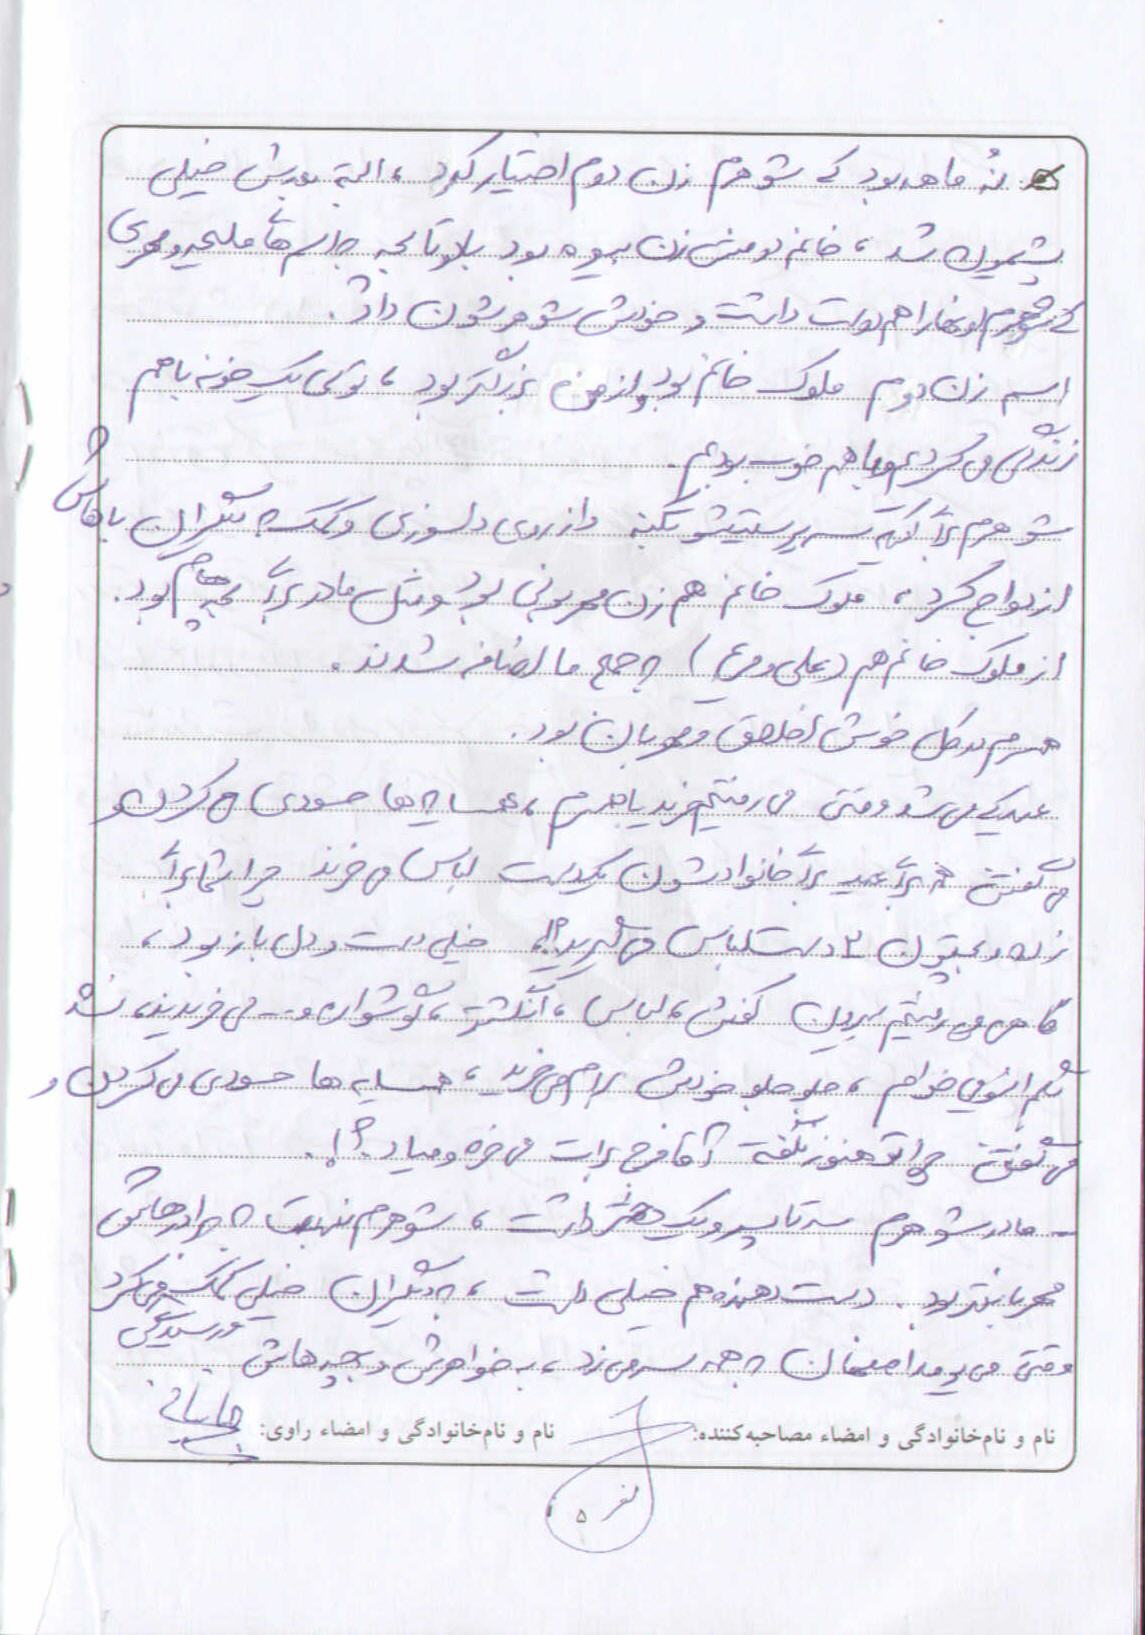 نُه ماهه بود که شوهرم زن دوم اختیار کرد، البته بعدش خیلی
پشیمون شد، خانم دومش زن بیوه بود با دو تا بچه به اسم‌های ملیحه و مهری
که شوهرم اونها را هم دوست داشت و خودش شوهرشون داد.
اسم زن دوم ملوک خانم بود و از من بزرگتر بود، توی یک خونه با هم
زندگی می‌کردیم و با هم خوب بودیم.
شوهرم برا اینکه سرپرستیشو بکنه و از روی دلسوزی و کمک به دیگران باهاش
ازدواج کرد، ملوک خانم هم زن مهربونی بود و مثل مادر برا بچه‌هام بود.
از ملوک خانم هم (علی و ) به جمع ما اضافه شدند.
همسرم در کل خوش اخلاق و مهربان بود.
عید که می‌شد وقتی می‌رفتیم خرید با همسرم، همسایه‌ها حسودی می‌کردن و
می‌گفتن همه برا عید برا خانوادشون یکدست لباس می‌خرند چرا شما برا
زن و بچتون ۲ دست لباس می‌گیرید؟!، خیلی دست و دل باز بود،
گاهی می‌رفتیم بیرون کفش، لباس، انگشتر، گوشواره و... می‌خریدند، نشد
بگم اینو می‌خوام، جلو جلو خودش برام می‌خرید، همسایه‌ها حسودی می‌کردن و
می‌گفتن چرا تو هنوز نگفته آقا فرج برات می‌خره و میاد؟!.
- مادر شوهرم سه تا پسر و یک دختر داشت، شوهرم نسبت به برادرهاش
مهربانتر بود. دست دهنده هم خیلی داشت، به دیگران خیلی کمک می‌کرد
وقتی می‌یومد اصفهان به همه سر می‌زد، به خواهرش و بچه‌هاش رسیدگی
نام و نام‌خانوادگی و امضاء مصاحبه‌کننده: نام و نام‌خانوادگی و امضاء راوی:
۵